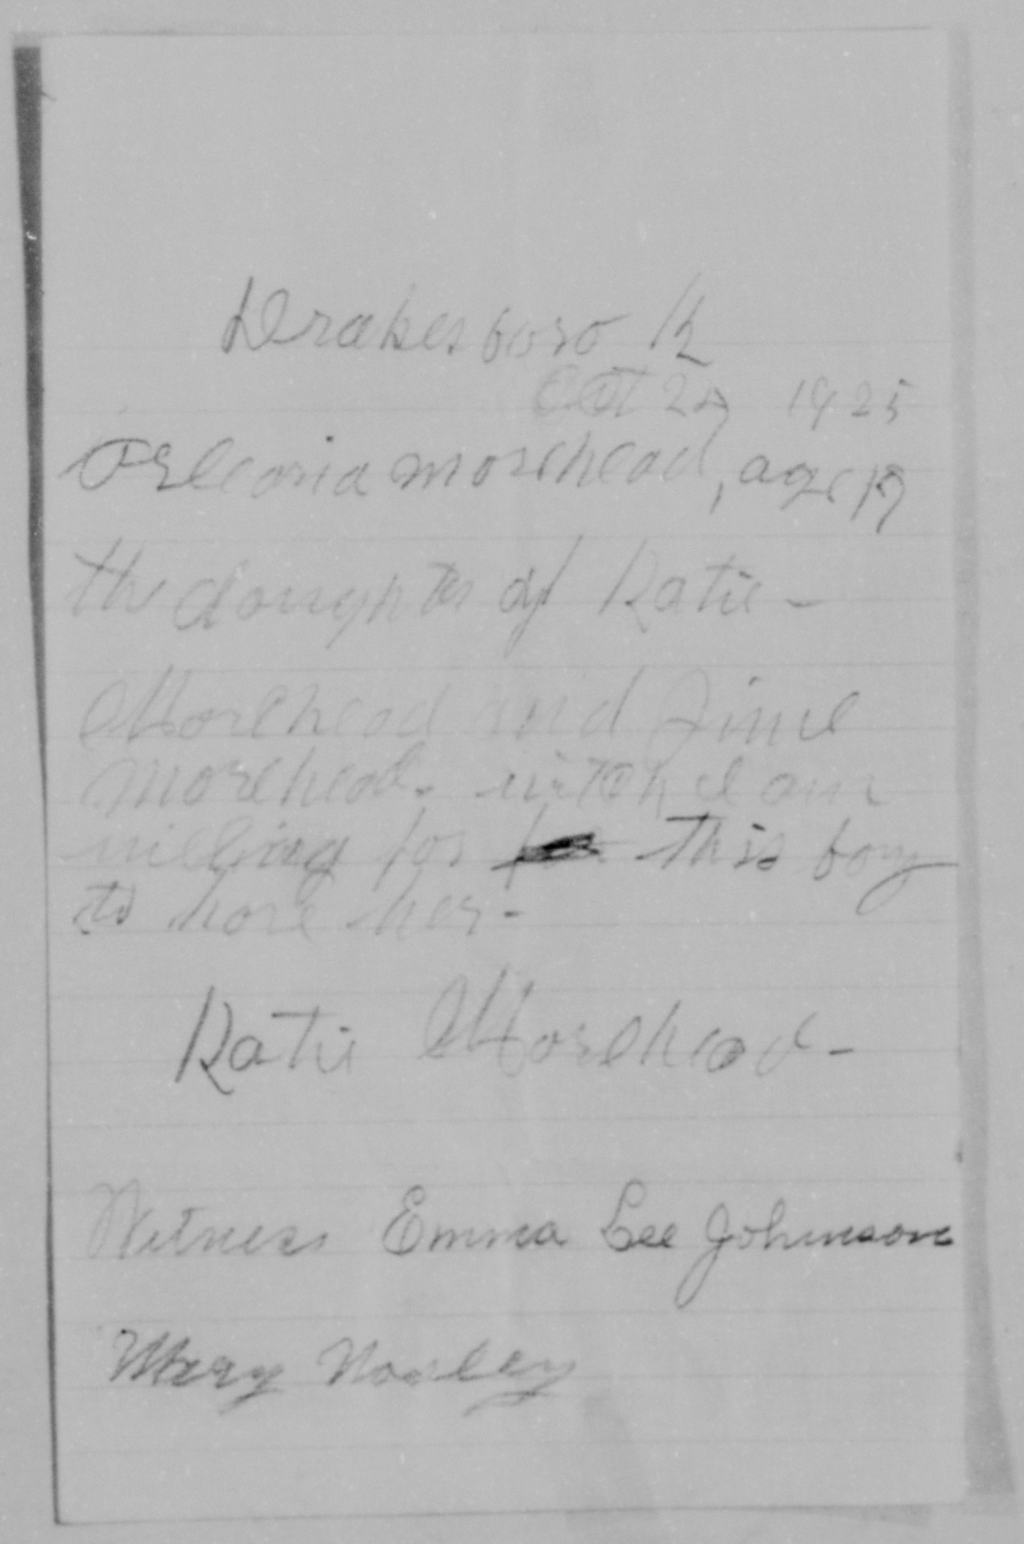 Drakesboro K
Oct 27 1925
Orleania morehead, age 17
the doughter of Katie -
Morehead and Jime
Morehead. witch I am
willing for this boy
to have her -
Katie Morehead -
Witness Emma Lee Johnson
Mary Noxley